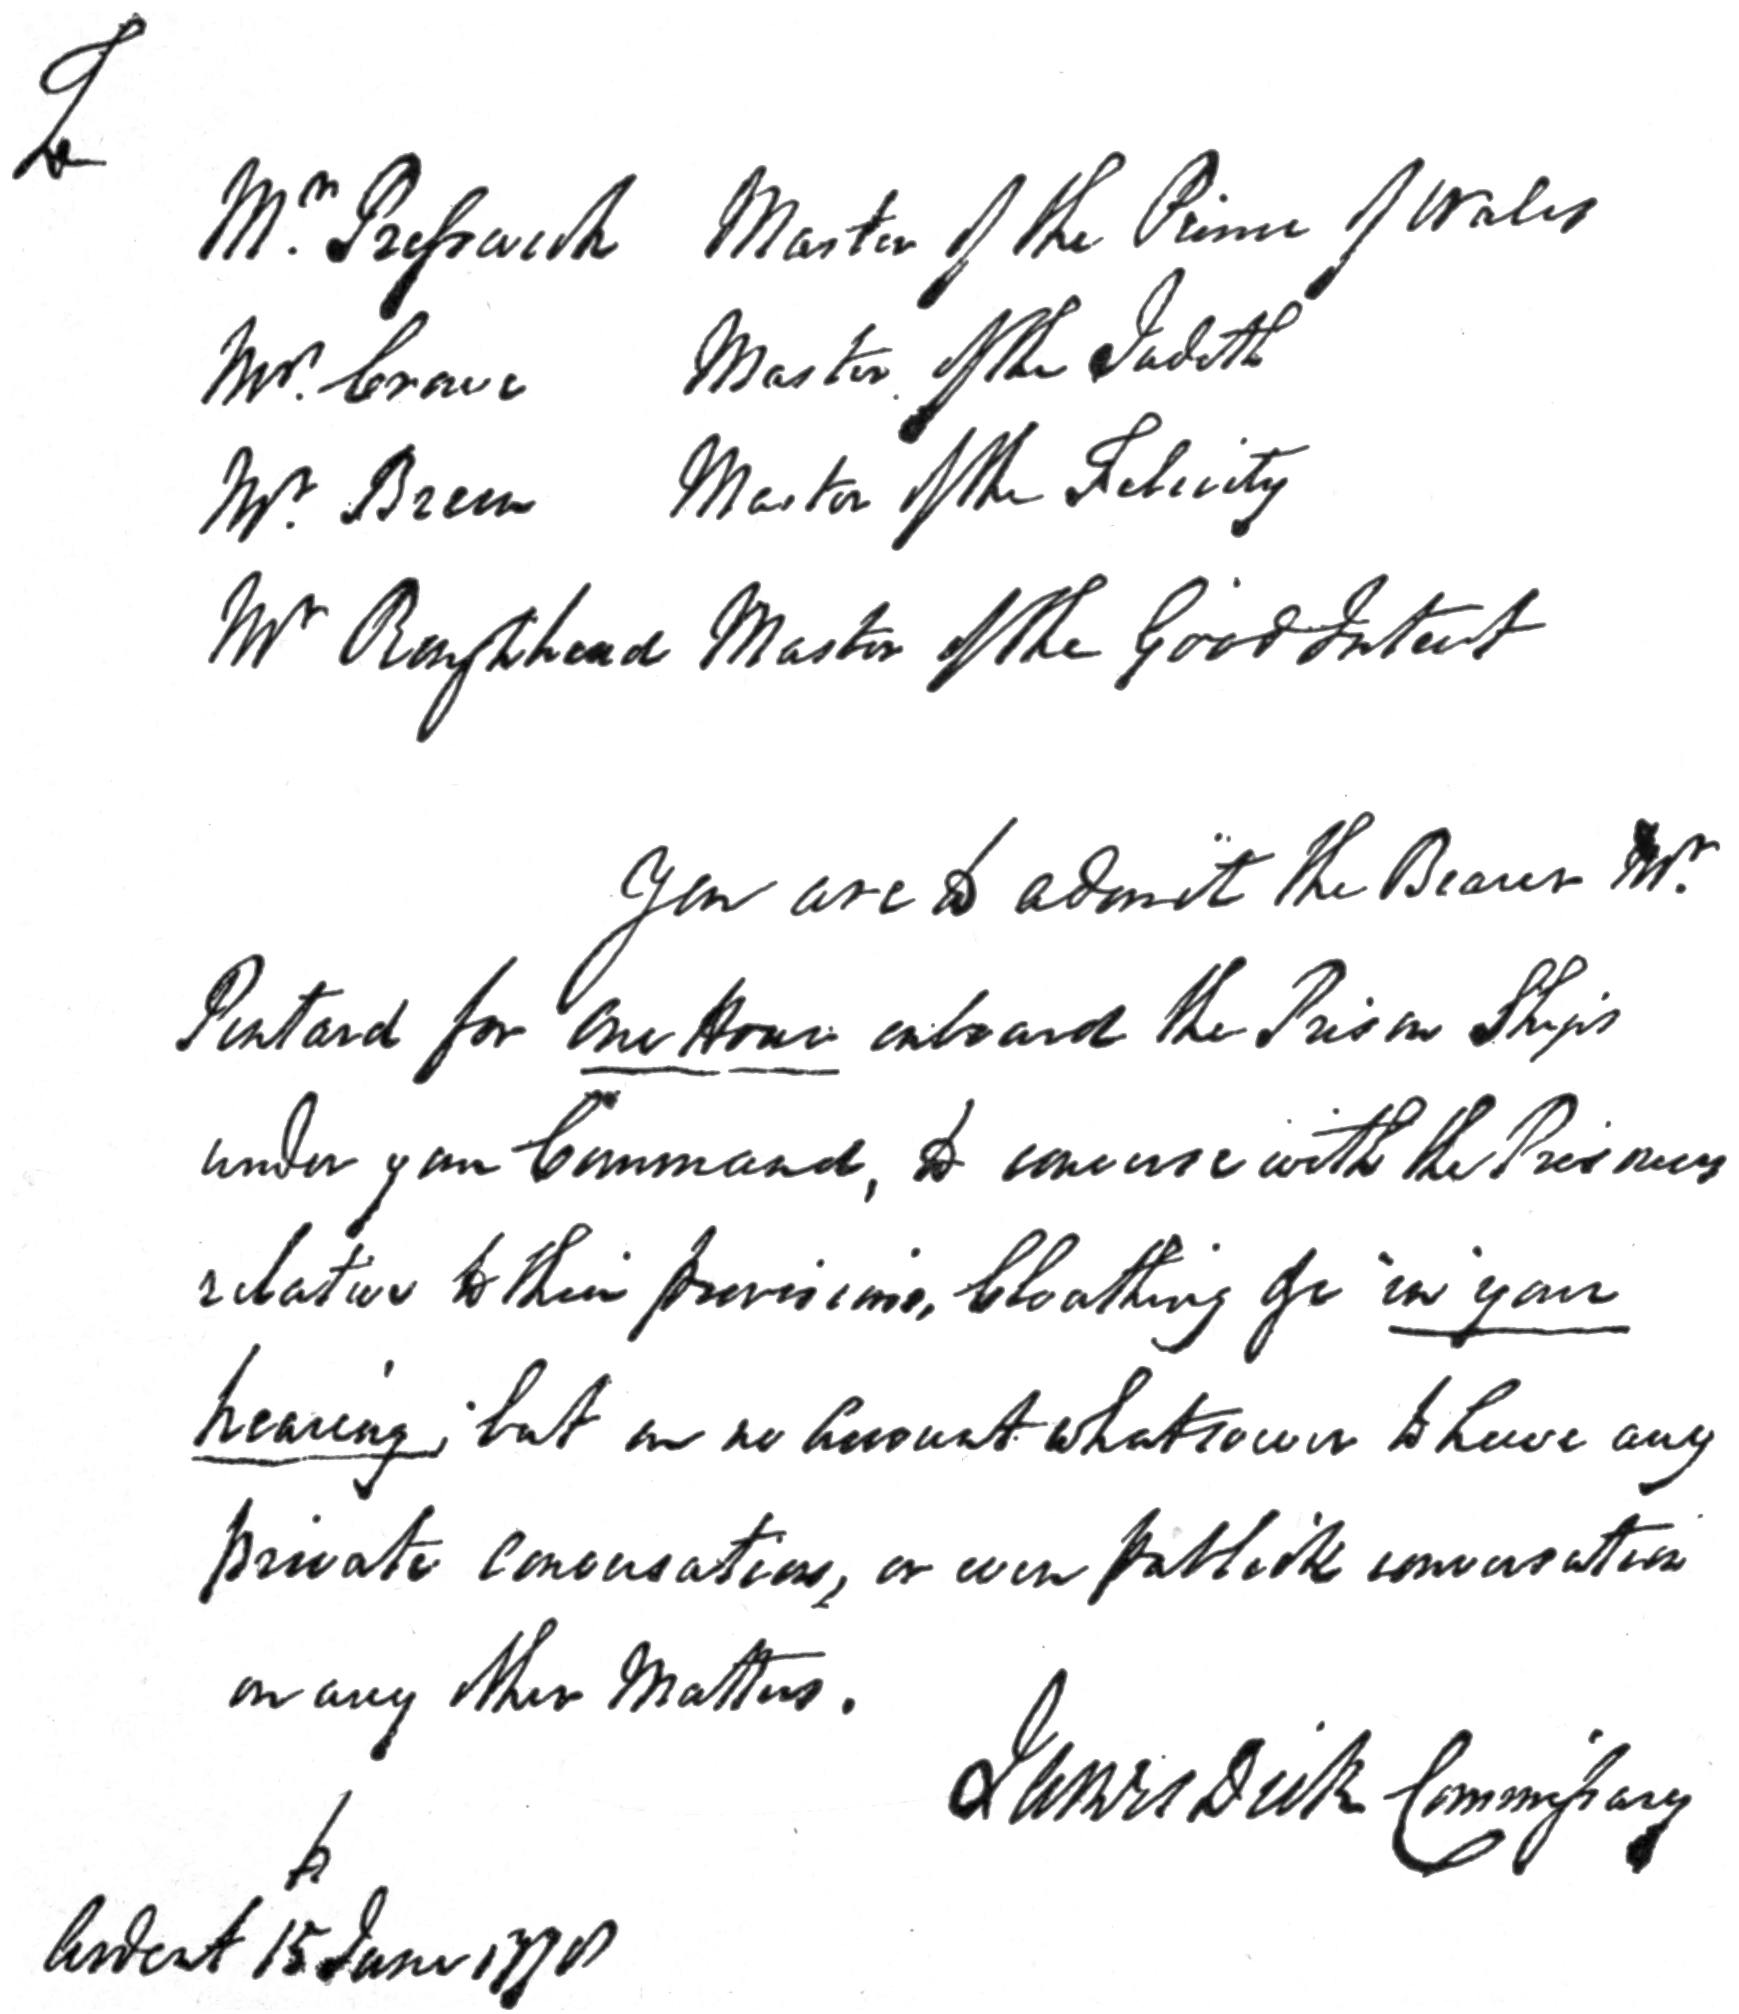 To
Mr. Presswick Master of the Prince of Wales
Mr. Crowe Master of the Judith
Mr. Breen Master of the Felicity
Mr Roughhead Master of the Good Intent
You are to admit the Bearer Mr.
Pintard for one Hour onboard the Prison Ships
under your Command, to converse with the Prisoners
relative to their provisions, Cloathing &c in your
hearing; but on no Account whatsoever to have any
private conversation, or even publick conversation
on any other Matters.
James Dick Commissary
Ardent 15th June 1778